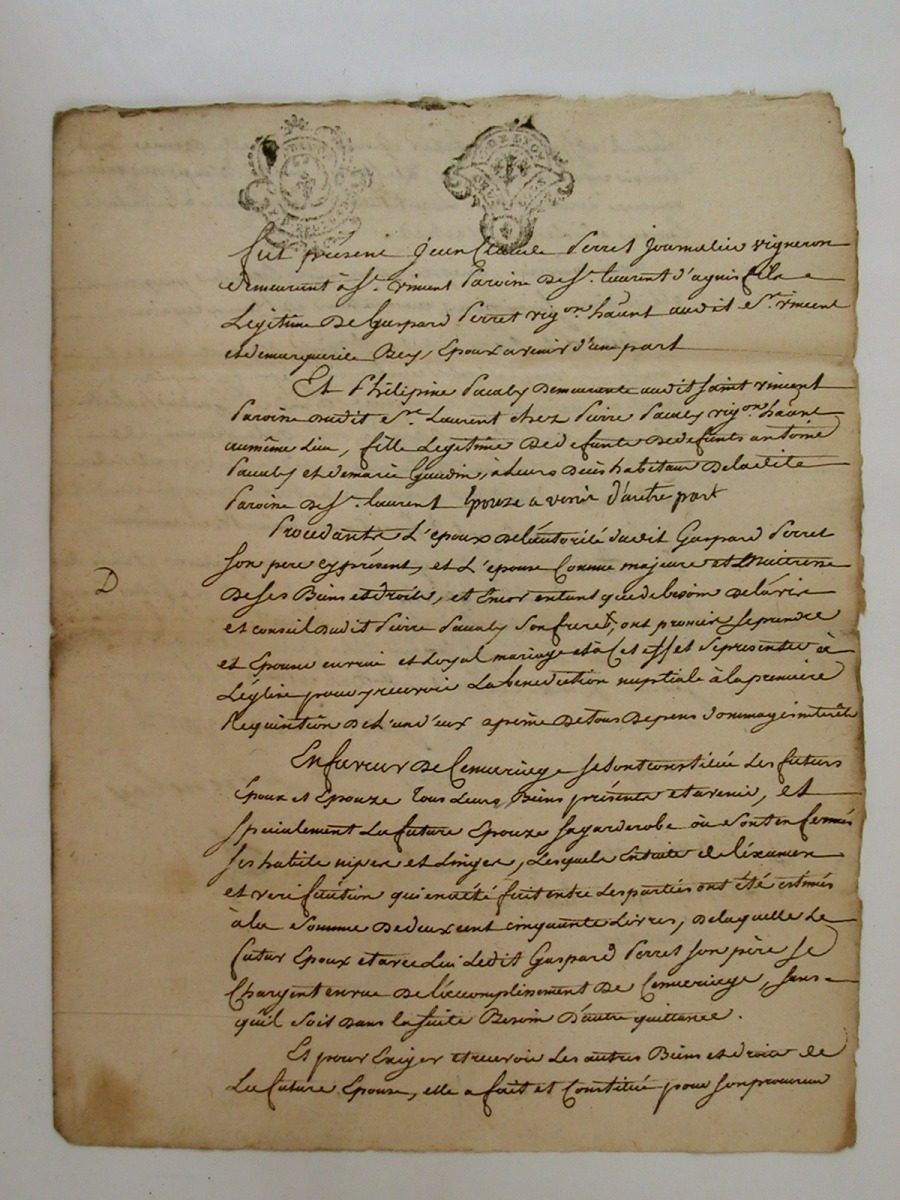 DE LYON
fut présent Jean Claude Perret Journalier vigneron
demeurant à St. vincent Paroisse de St. laurent d'agnis fils
Legitime de Gaspard Perret vigon. hãnt audit St. vincent
et de marguerite Bey, Epoux avenir d'une part
Et Philipine Pacaly demeurante audit saint vincent
Paroisse dudit St. Laurent chez Pierre Pacaly vigon. hãnt
au même lieu, fille Legitime de defunts antoine
Pacaly et de marie Gaudin, à leurs decès habitans de la dite
Paroisse de St. laurent Epouze a venir d'autre part
Procedants L'epoux de l'autorité dudit Gaspard Perret
son pere cy présent, et L'epouse Comme majeure et Maitresse
de ses Biens et droits, et Encor entant que de besoin de l'avis
et conseil dudit Pierre Pacaly son frere, ont promis se prendre
et Epouser en vrai et Loyal mariage et à Cet effet se presenter à
L'église pour y recevoir La benediction nuptiale à la premiere
Requisition de L'un d'eux a peine de tous depens dommages interêts
D
En faveur de Ce mariage se sont constitué Les futurs
Epoux et Epouze Tous Leurs Biens présents et avenir, et
specialement La future Epouze sa garderobe où sont enfermés
ses habits nipes et Linges, Lesquels Ensuite de l'éxamen
et verification qui en a été fait entre Les parties ont été estimés
à la somme de deux cent cinquante Livres, de laquelle Le
futur Epoux et avec Lui Ledit Gaspard Perret son père se
Chargent en vue de l'accomplissement de Ce mariage, sans
qu'il soit dans la suite Besoin d'autre quittance.
Et pour Exiger et recevoir Les autres Biens et droits de
La future Epouse, elle a fait et Constitué pour son procureur